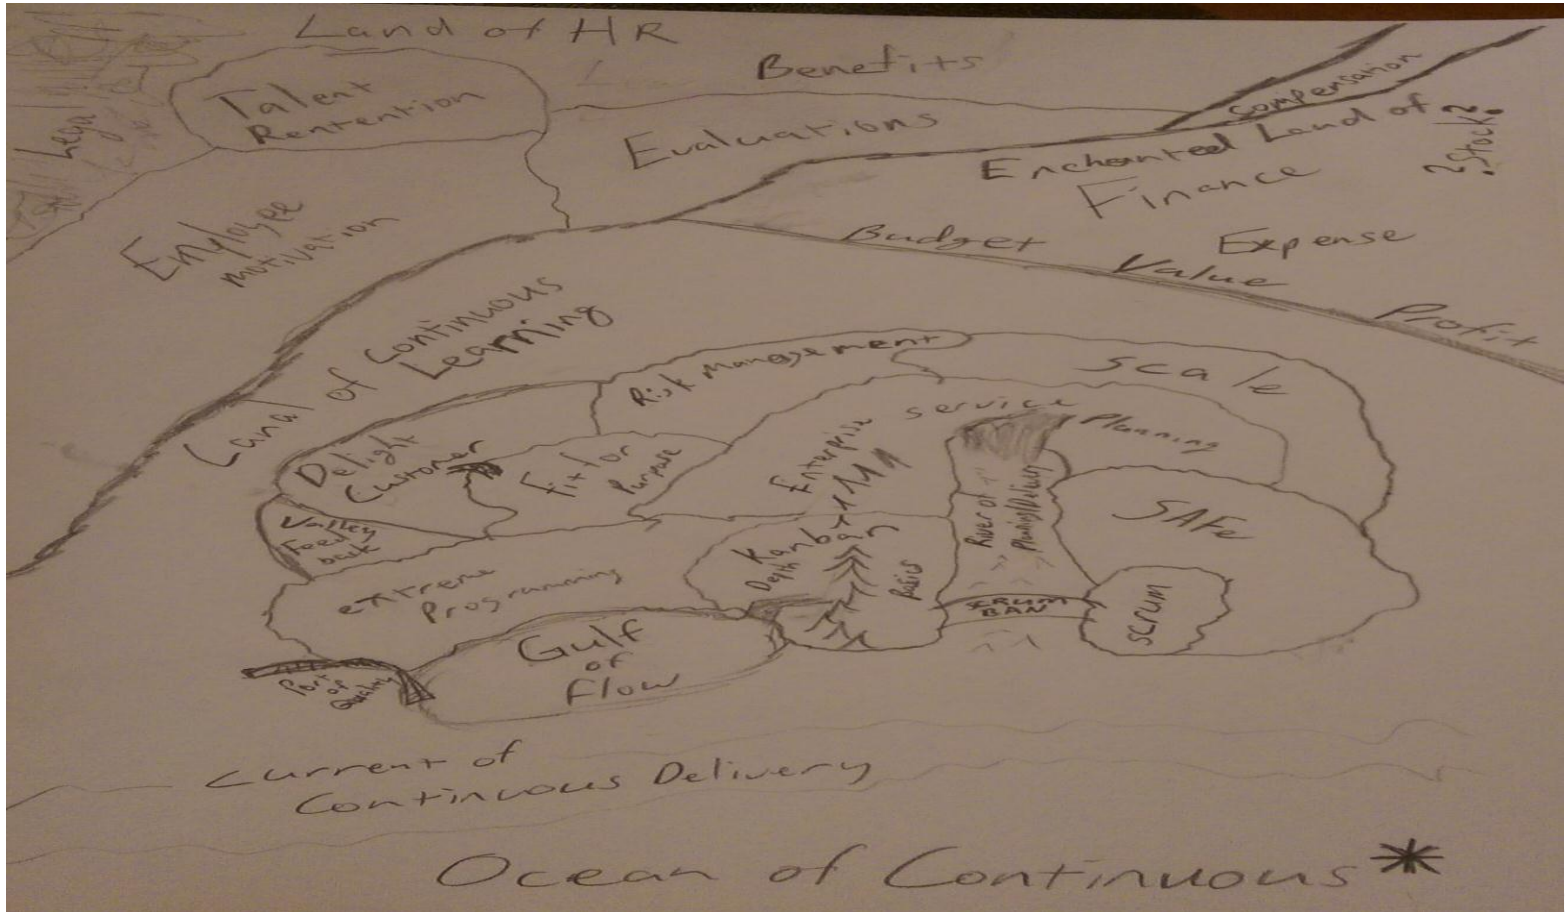 Land of HR
Talent
Rentention
Benefits
Compensation
Evaluations
Enchanted Land of
Finance
?Stock?
Employee
motivation
Budget
Expense
Value
Profit
Land of Continuous
Learning
Risk Management
Scale
Delight
Customer
Fit for
Purpose
Enterprise
Service
Planning
Valley
Feed
back
extreme
Programming
Kanban
Depth
Basics
River of
Planning/Delivery
SAFe
SCRUM
BAN
SCRUM
Gulf
of
Flow
Port
of
Quality
Current of
Continuous Delivery
Ocean of Continuous *